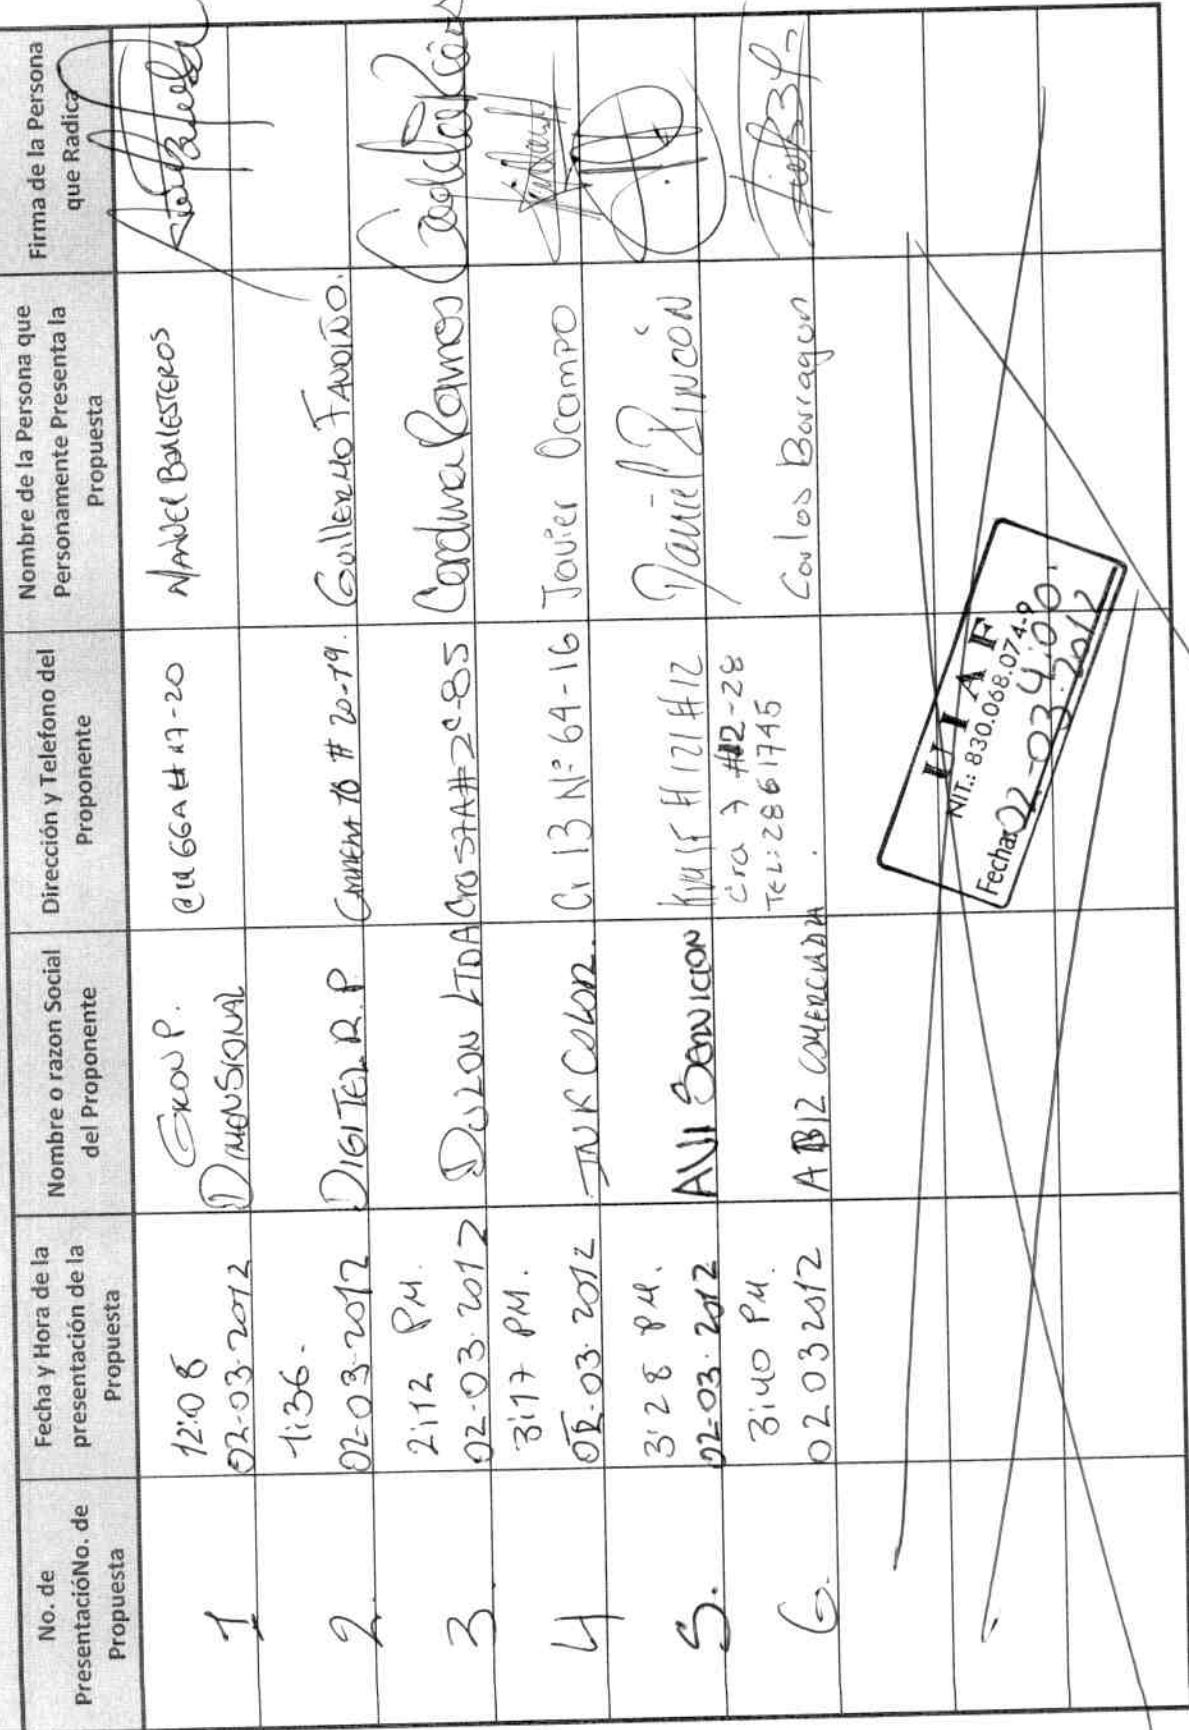 No. de
PresentacióNo. de
Propuesta
Fecha y Hora de la
presentación de la
Propuesta
Nombre o razon Social
del Proponente
Dirección y Telefono del
Proponente
Nombre de la Persona que
Personamente Presenta la
Propuesta
Firma de la Persona
que Radica
1
12:08
02-03-2012
GROUP.
DIMENSIONAL
Cll 66A # 27-20
MANUEL BALLESTEROS
2.
1:36.
02-03-2012
DIGITEL R.P
CARRERA 18 # 20-19.
GUILLERMO
3.
2:12 PM.
02-03-2012
LTDA
Cra 57A # 2C-85
Carolina Ramos
4
3:17 PM.
02-03-2012
INK COLOR.
Cl 13 Nº 64-16
Javier Ocampo
5.
3:28 PM.
02-03-2012
AVI SERVICION
# 121 # 12
Daniel RINCÓN
6.
3:40 PM.
02 03 2012
AB12 COMERCIAL
Cra 7 #12-28
TEL: 2861745
Carlos Barragan
UIAF
NIT.: 830.068.074-9
Fecha: 02-03 4:00
03-2012